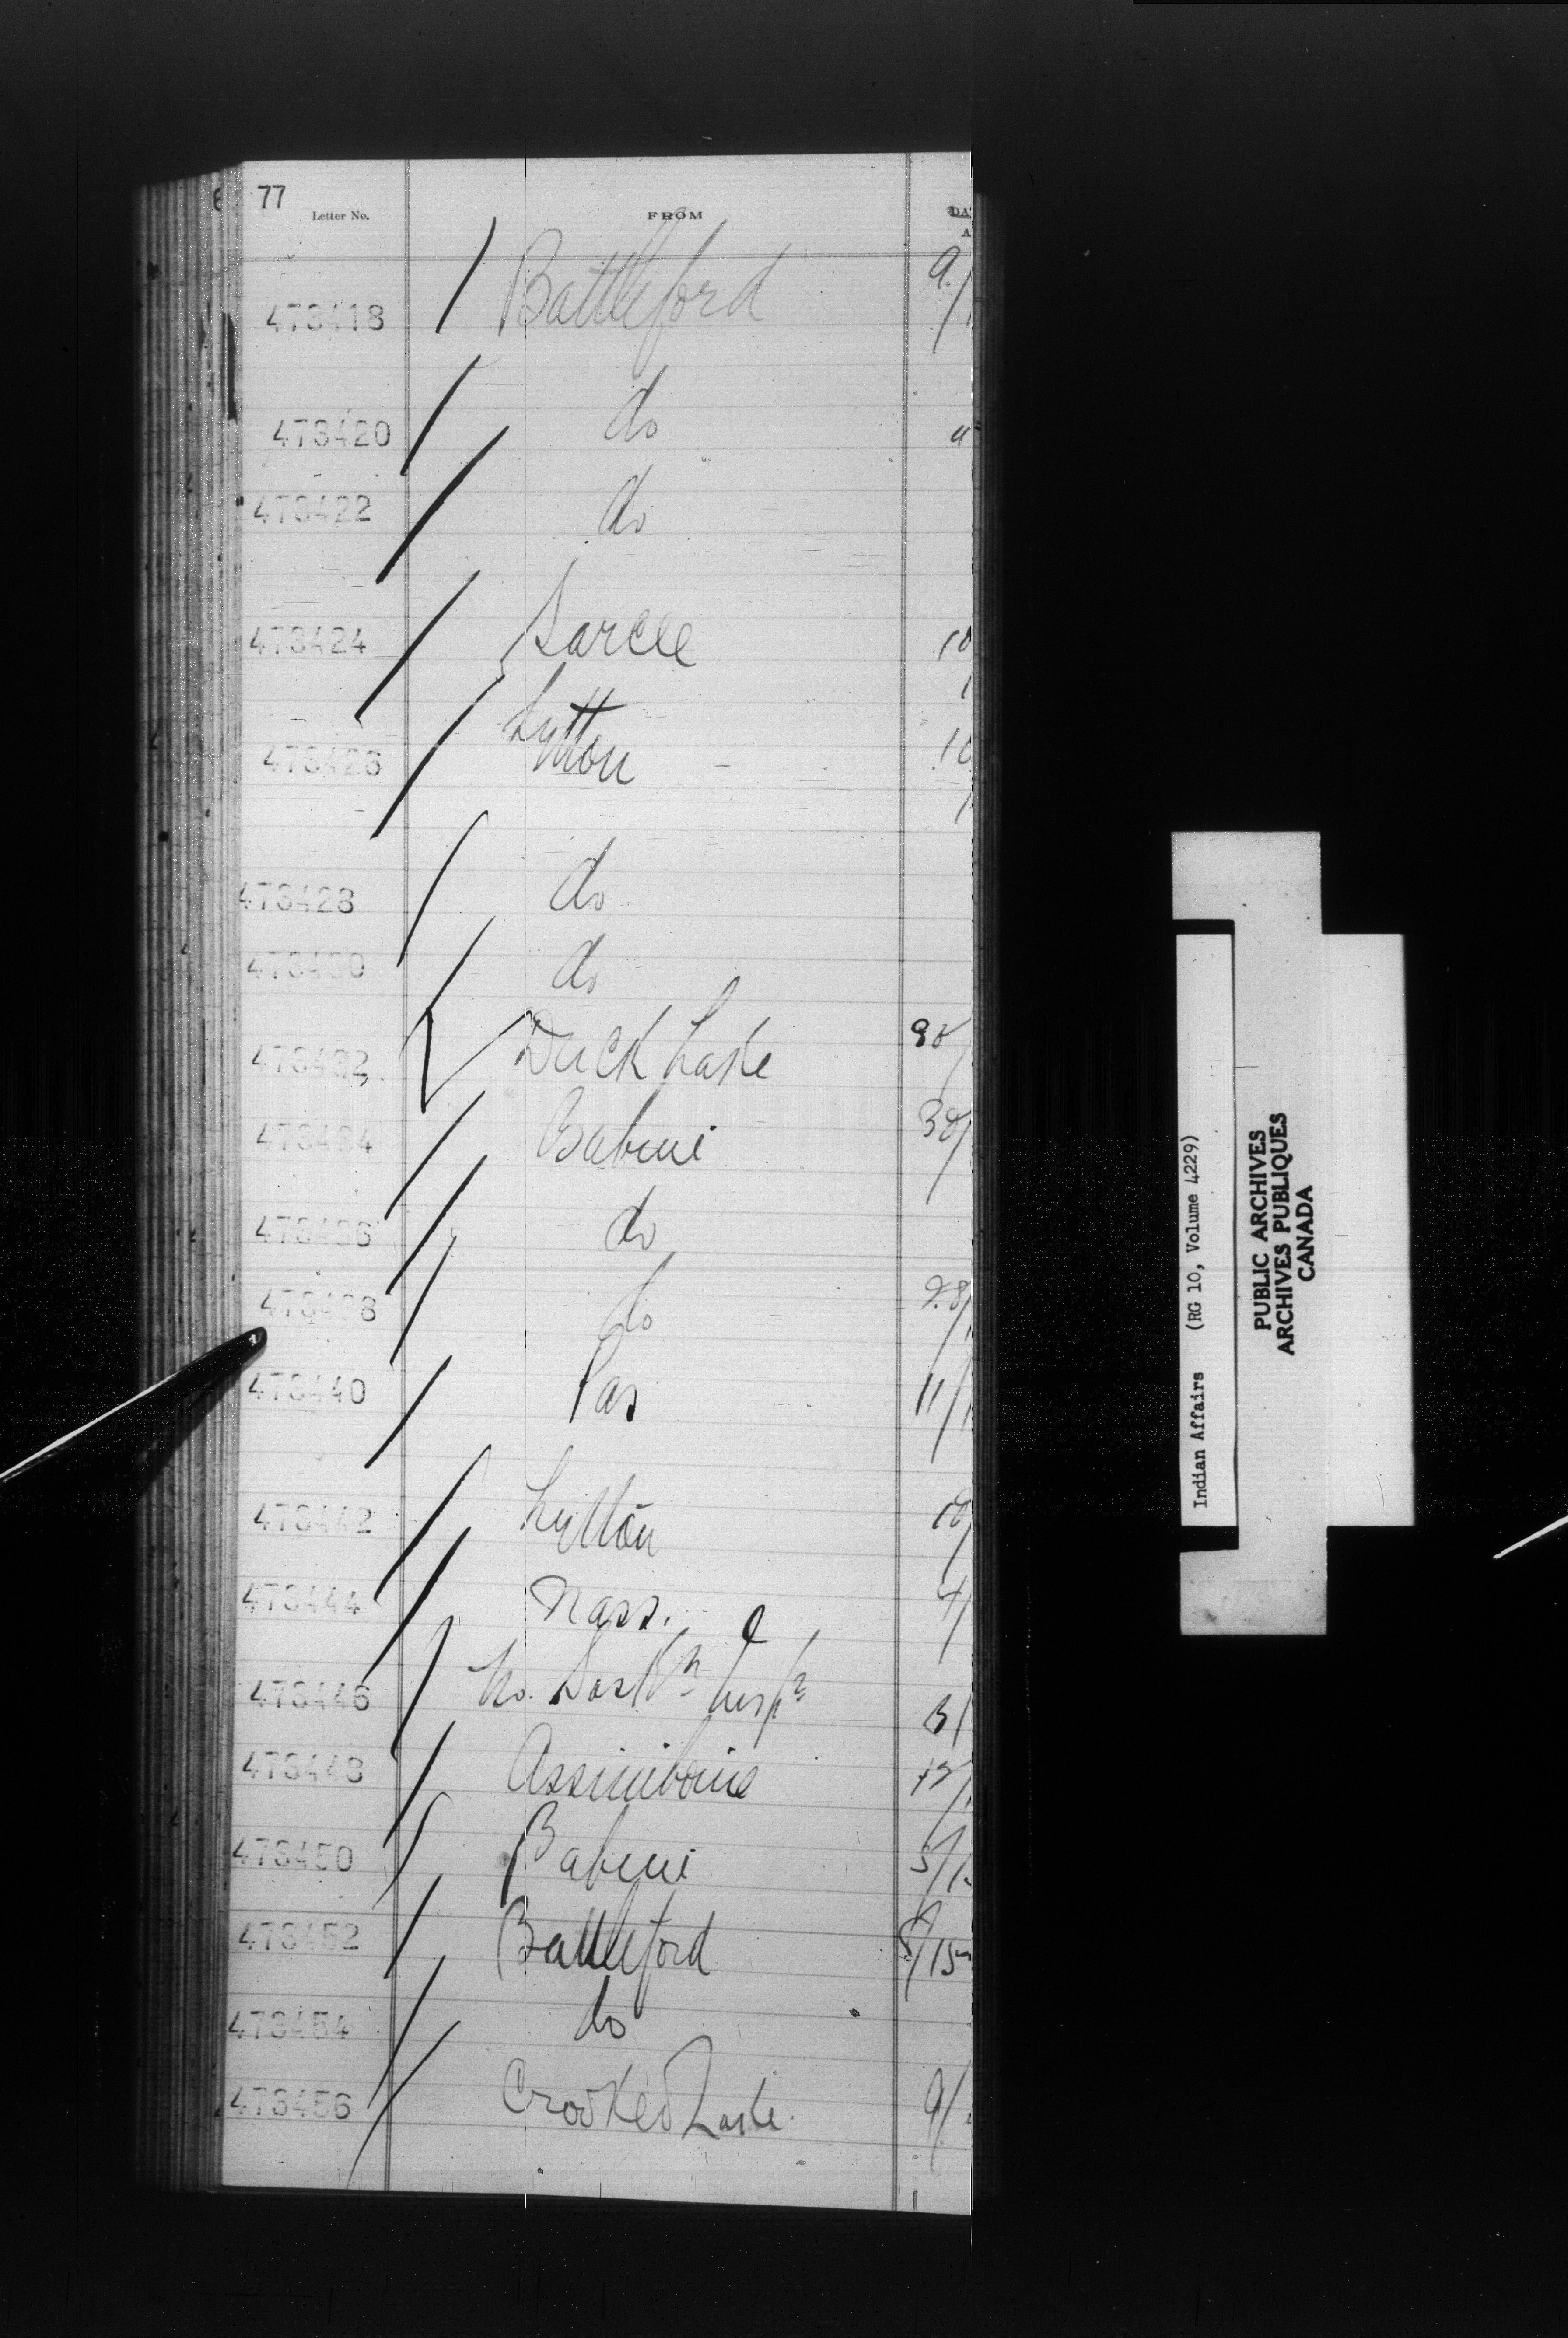 77
Letter No. FROM DA
A
473418 Battleford 9/
473420 do "
473422 do
473424 Sarcee 10
473426 Lytton
473428 do
473430 do
473432 Duck Lake
473434 Babine 30/
473436 do
473438 do
473440 Pas 11/1
473442 Lytton 10/
473444 Nass. 4/
473446 No. Sask n Insp n
473448 Assiniboine
473450 Babine 5/1
473452 Battleford
473454 do
473456 Crooked Lake 9/
Indian Affairs (RG 10, Volume 4229)
PUBLIC ARCHIVES
ARCHIVES PUBLIQUES
CANADA